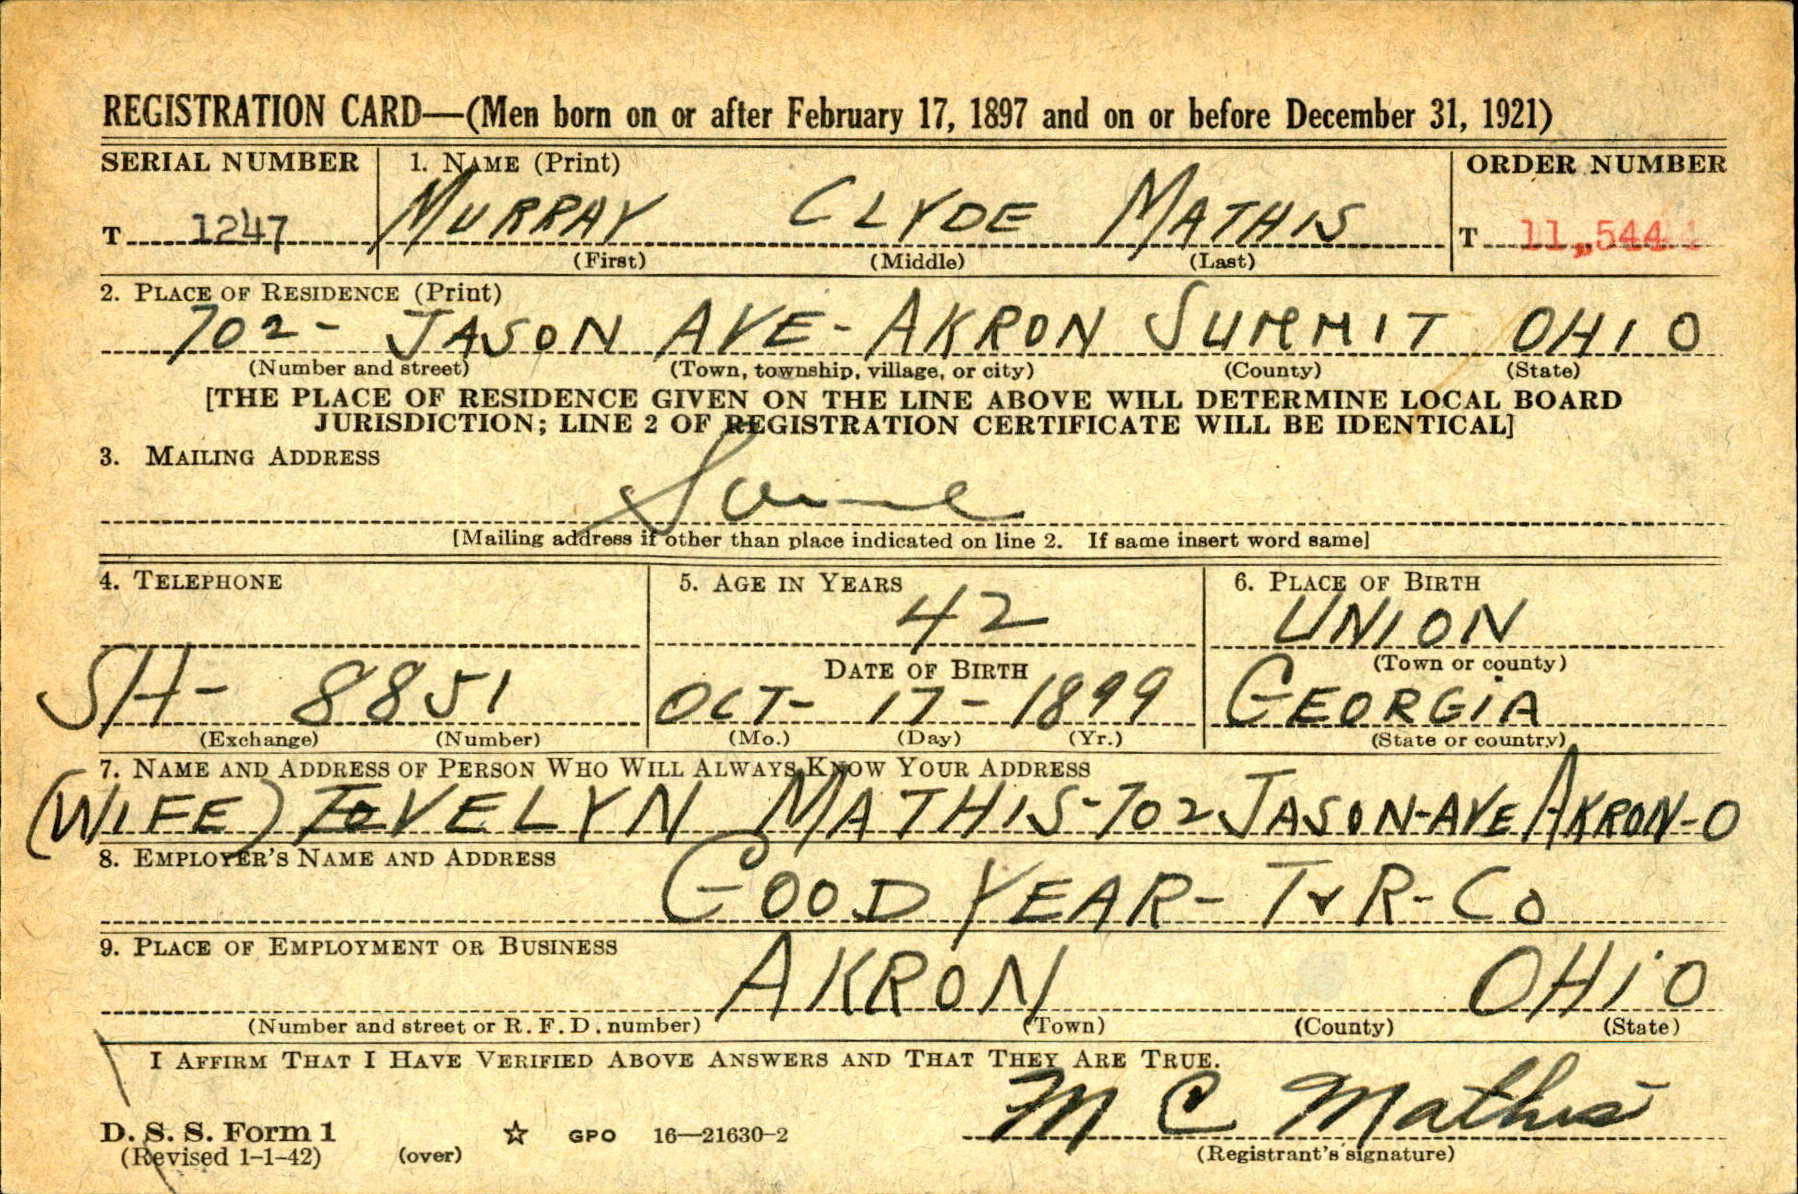 REGISTRATION CARD—(Men born on or after February 17, 1897 and on or before December 31, 1921)
SERIAL NUMBER 1. NAME (Print) ORDER NUMBER
T 1247 MURRAY CLYDE MATHIS T 11,544
(First) (Middle) (Last)
2. PLACE OF RESIDENCE (Print)
702 - JASON AVE - AKRON SUMMIT OHIO
(Number and street) (Town, township, village, or city) (County) (State)
[THE PLACE OF RESIDENCE GIVEN ON THE LINE ABOVE WILL DETERMINE LOCAL BOARD
JURISDICTION; LINE 2 OF REGISTRATION CERTIFICATE WILL BE IDENTICAL]
3. MAILING ADDRESS
Same
[Mailing address if other than place indicated on line 2. If same insert word same]
4. TELEPHONE 5. AGE IN YEARS 6. PLACE OF BIRTH
42 UNION
DATE OF BIRTH (Town or county)
SH- 8851 OCT- 17- 1899 GEORGIA
(Exchange) (Number) (Mo.) (Day) (Yr.) (State or country)
7. NAME AND ADDRESS OF PERSON WHO WILL ALWAYS KNOW YOUR ADDRESS
(WIFE) EVELYN MATHIS-702 JASON-AVE AKRON-O
8. EMPLOYER'S NAME AND ADDRESS
GOODYEAR- T & R- CO
9. PLACE OF EMPLOYMENT OR BUSINESS
AKRON OHIO
(Number and street or R. F. D. number) (Town) (County) (State)
I AFFIRM THAT I HAVE VERIFIED ABOVE ANSWERS AND THAT THEY ARE TRUE.
M C Mathis
D. S. S. Form 1 ☆ GPO 16—21630-2
(Revised 1-1-42) (over) (Registrant's signature)